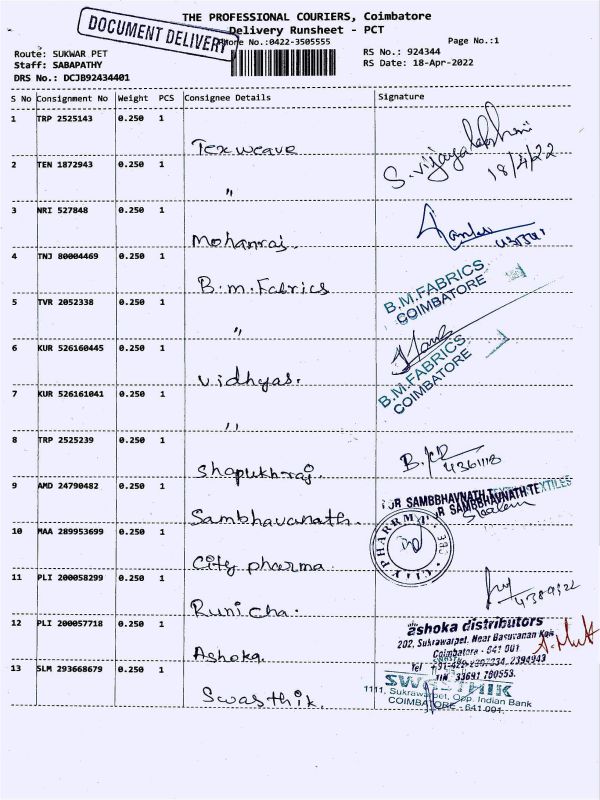 THE PROFESSIONAL COURIERS, Coimbatore
DOCUMENT DELIVERY
Delivery Runsheet - PCT
Phone No.:0422-3505555
Page No.:1
Route: SUKWAR PET
RS No.: 924344
Staff: SABAPATHY
RS Date: 18-Apr-2022
DRS No.: DCJB92434401
S No Consignment No Weight PCS Consignee Details Signature
1 TRP 2525143 0.250 1 Tex weave S. Vijayalakshmi 18/4/22
2 TEN 1872943 0.250 1 "
3 NRI 527848 0.250 1 Mohanraj.
4 TNJ 80004469 0.250 1 B.m.Fabrics B.M.FABRICS COIMBATORE
5 TVR 2052338 0.250 1 "
6 KUR 526160445 0.250 1 Vidhyas. B.M.FABRICS COIMBATORE
7 KUR 526161041 0.250 1 "
8 TRP 2525239 0.250 1 Shapukhraj.
9 AMD 24790482 0.250 1 Sambhavanath. FOR SAMBBHAVNATH TEXTILES
R SAMBBHAVNATH TEXTILES
10 MAA 289953699 0.250 1 City pharma CITY PHARRMA
11 PLI 200058299 0.250 1 Runicha.
12 PLI 200057718 0.250 1 Ashoka. ashoka distributors
202, Sukrawarpet, Near Basuvanan Koil,
Coimbatore - 641 001
13 SLM 293668679 0.250 1 Swasthik. SWASTHIK
1111, Sukrawarpet, Opp. Indian Bank
COIMBATORE - 641 001.